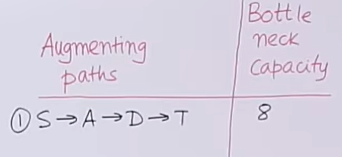 Augmenting
paths
Bottle
neck
Capacity
① S→A→D→T
8